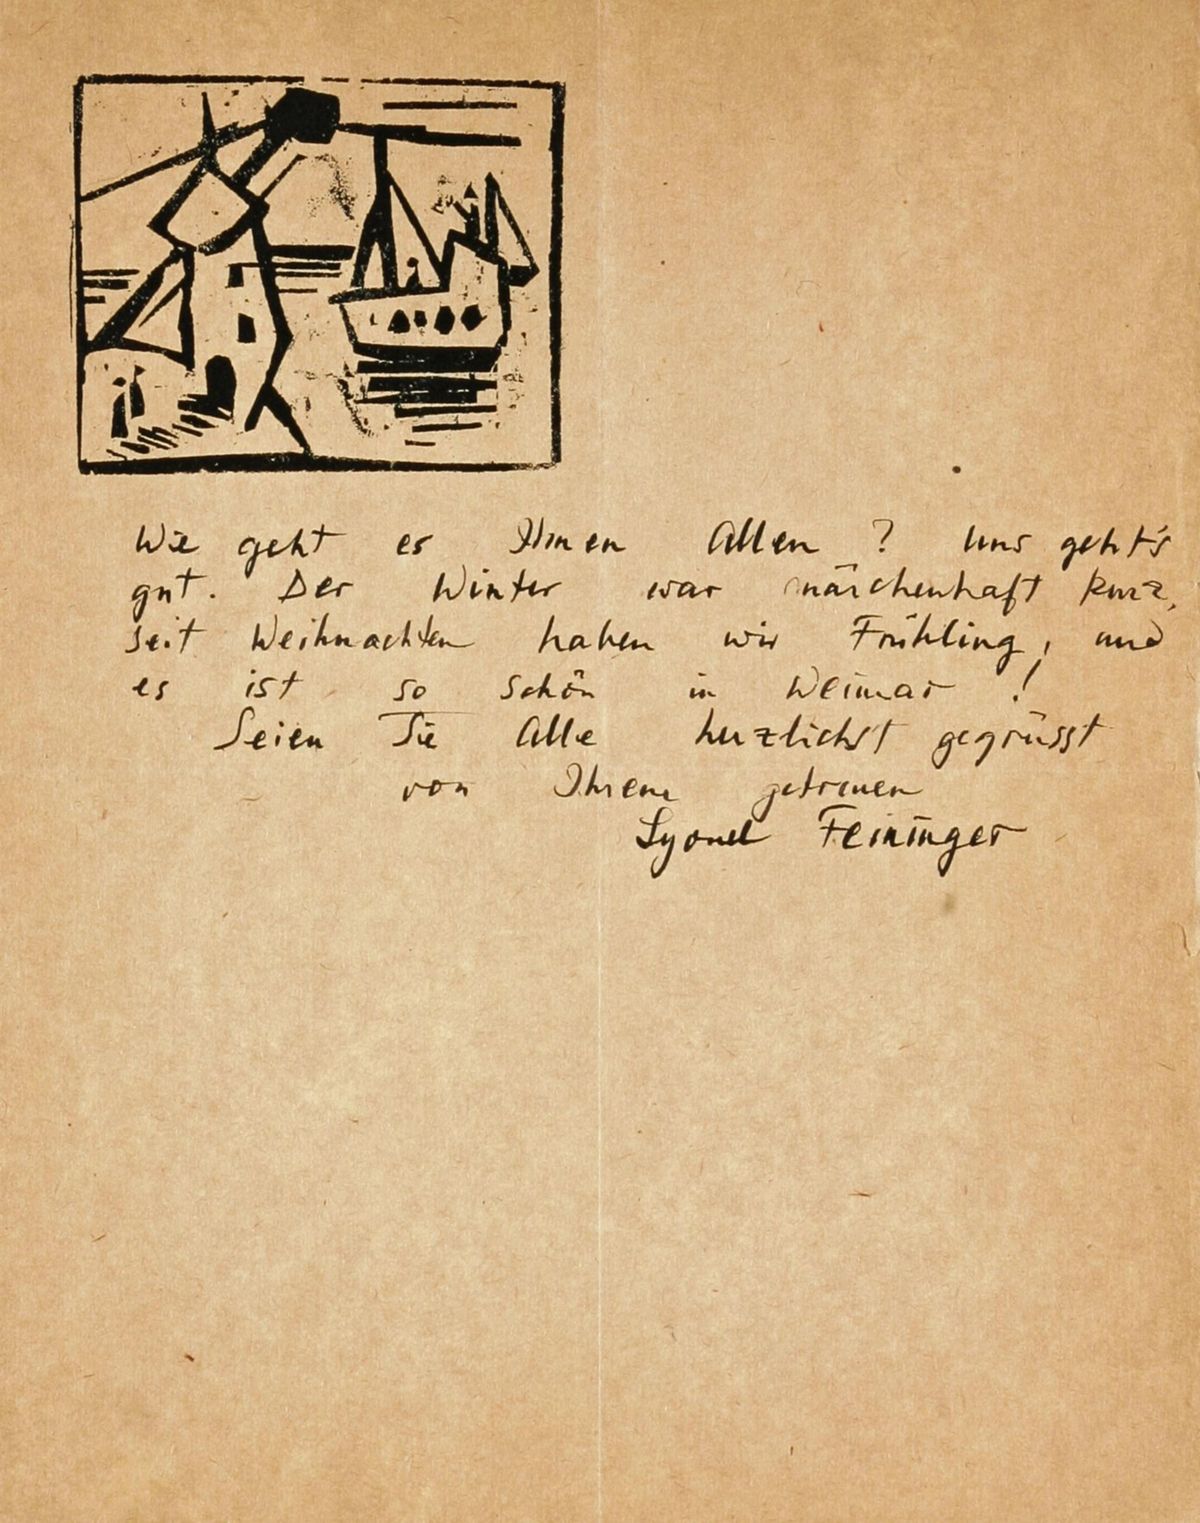 Wie geht es Ihnen Allen? Uns geht's
gut. Der Winter war märchenhaft kurz,
seit Weihnachten haben wir Frühling, und
es ist so schön in Weimar!
Seien Sie Alle herzlichst gegrüsst
von Ihrem getreuen
Lyonel Feininger